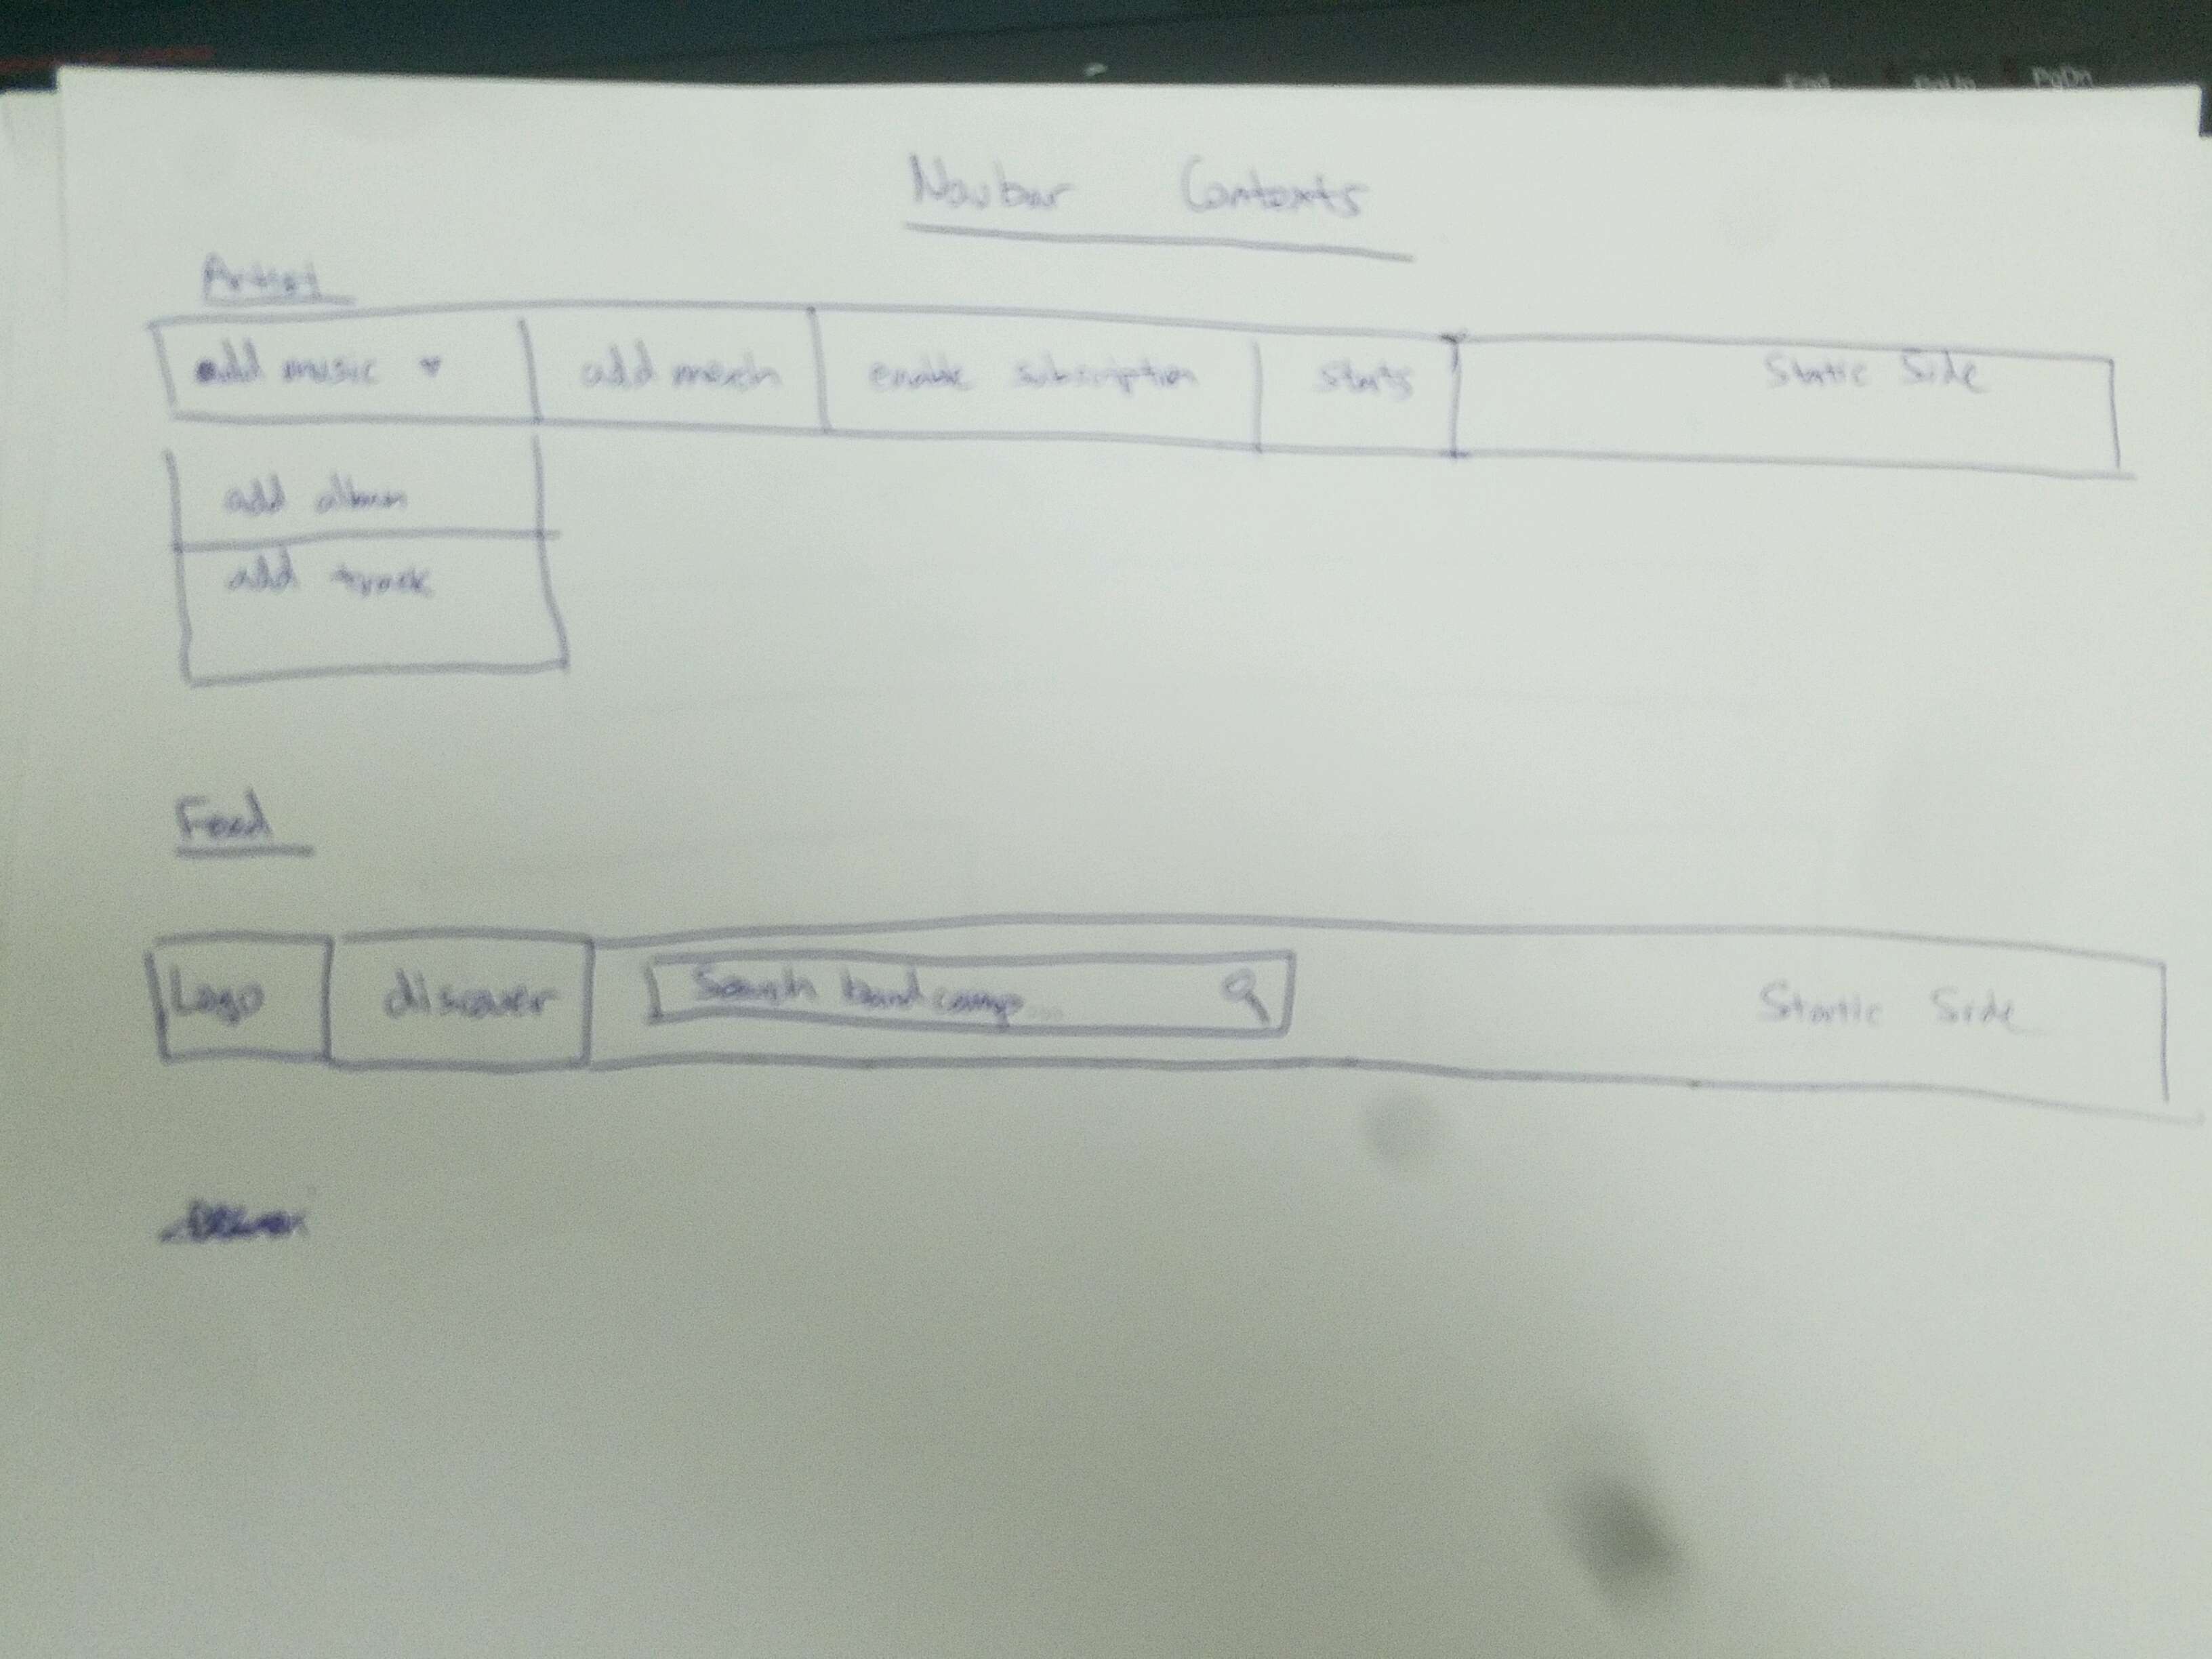 Navbar Contexts
Artist
add music ▾ add merch enable subscription stats Static Side
add album
add track
Feed
Logo discover Search bandcamp... Static Side
PgDn